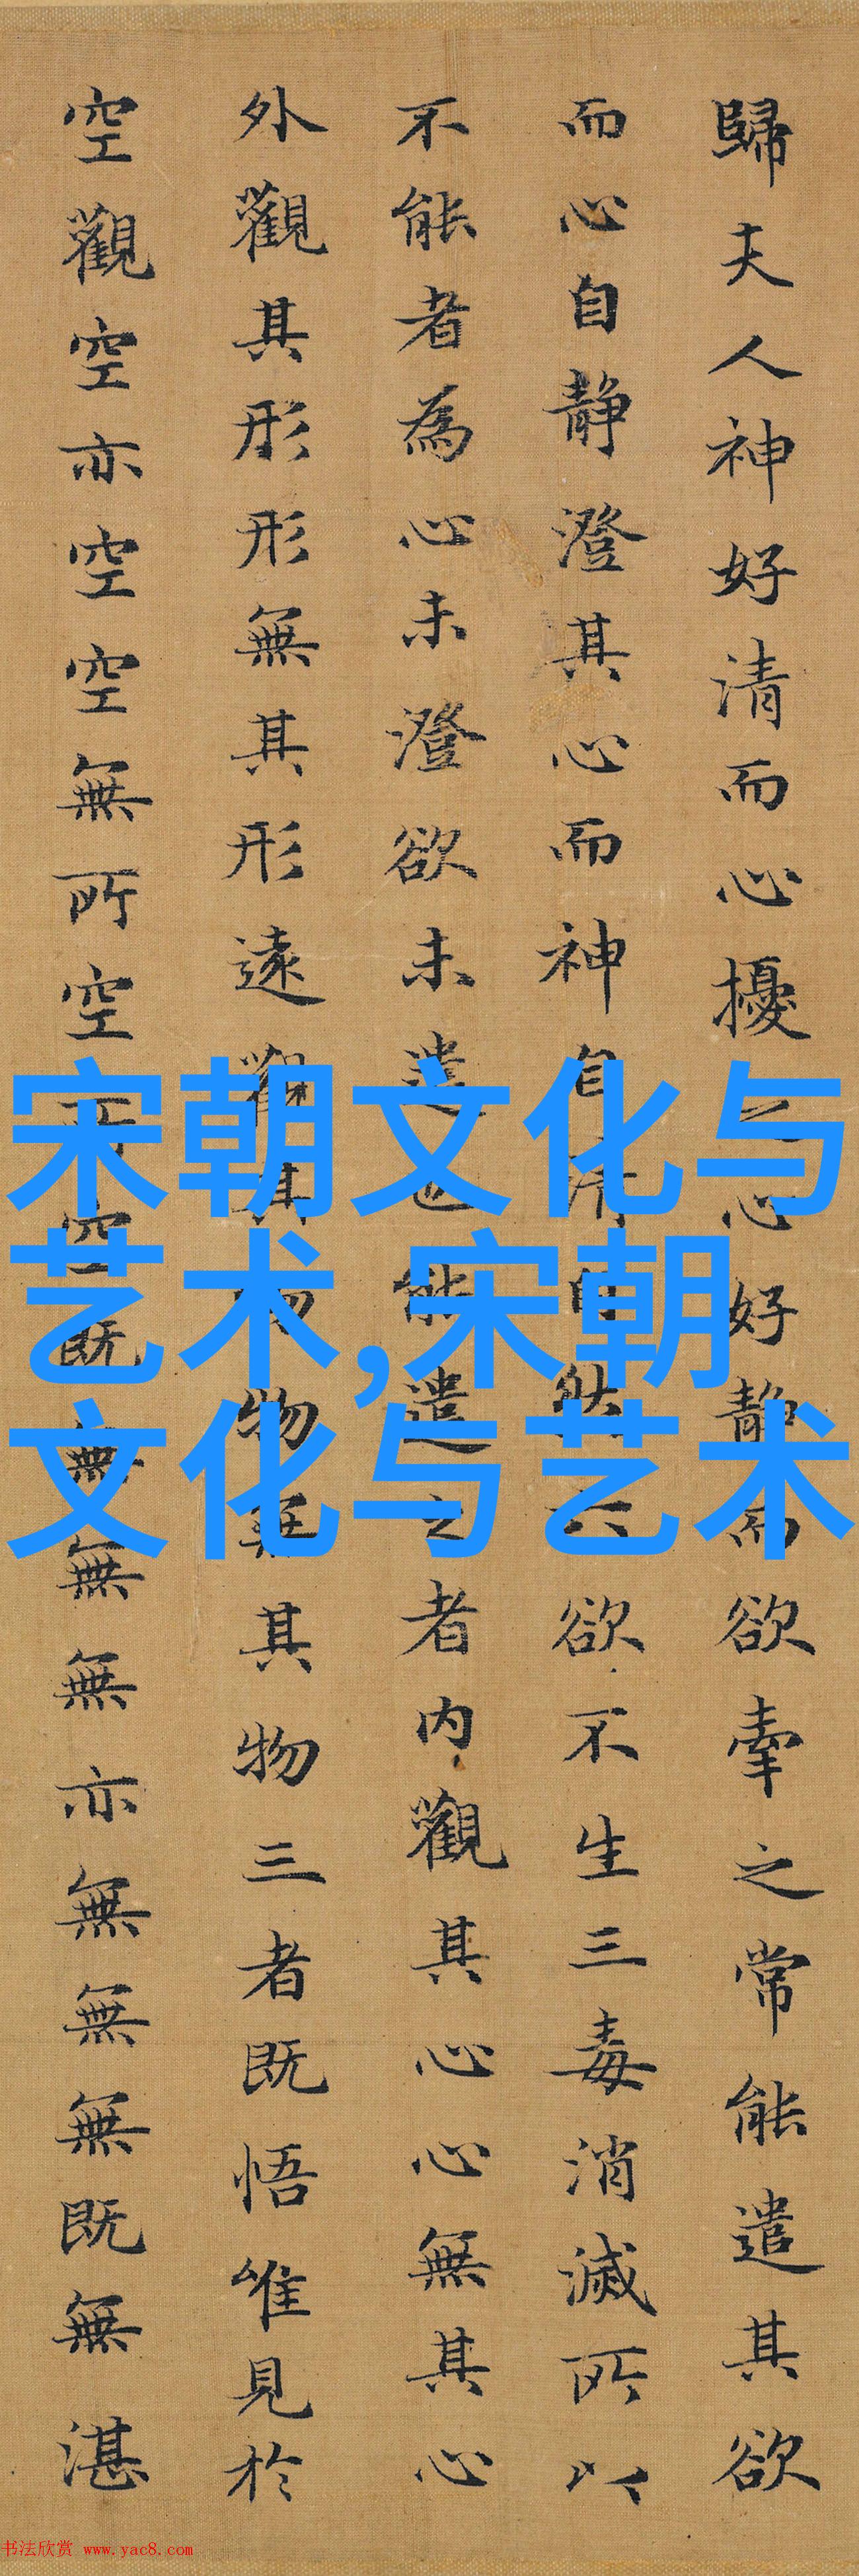 歸夫人神好清而心擾之心好静而欲牽之常能遣其欲
而心自静澄其心而神自清自然六欲不生三毒消滅所以
不能者為心未澄欲未遣也能遣之者内觀其心心無其心
外觀其形形無其形遠觀其物物無其物三者既悟唯見於
空觀空亦空空無所空所空既無無無亦無無無既無湛
宋朝文化与
艺术,宋朝
文化与艺术
书法欣赏 www.yac8.com